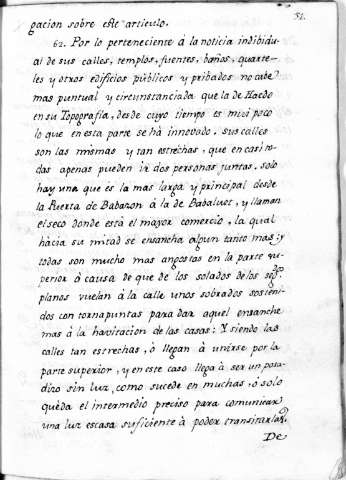 51.
gacion sobre este articulo.
62. Por lo perteneciente á la noticia indibidu-
al de sus calles, templos, fuentes, baños, quarte-
les y otros edificios públicos y pribados no cabe
mas puntual y circunstanciada que la de Haedo
en su Topografía, desde cuyo tiempo es mui poco
lo que en esta parte se há innovado. sus calles
son las mismas y tan estrechas, que en casi to-
das apenas pueden ir dos personas juntas. solo
hay una que és la mas larga y principal desde
la Puerta de Babazon á la de Babaluet, y llaman
el seco donde está el mayor comercio, la qual
hácia su mitad se ensancha algun tanto mas; y
todas son mucho mas angostas en la parte su-
perior á causa de que de los solados de los seg.dos
planos vuelan á la calle unos sobrados sosteni-
dos con tornapuntas para dar aquel ensanche
mas á la havitacion de las casas: Y siendo las
calles tan estrechas, ó llegan á unirse por la
parte superior, y en este caso llega á ser un pasa-
dizo sin luz, como sucede en muchas, ó solo
quéda el intermedio preciso para comunicar
una luz escasa suficiente á poder transitarlas.
De